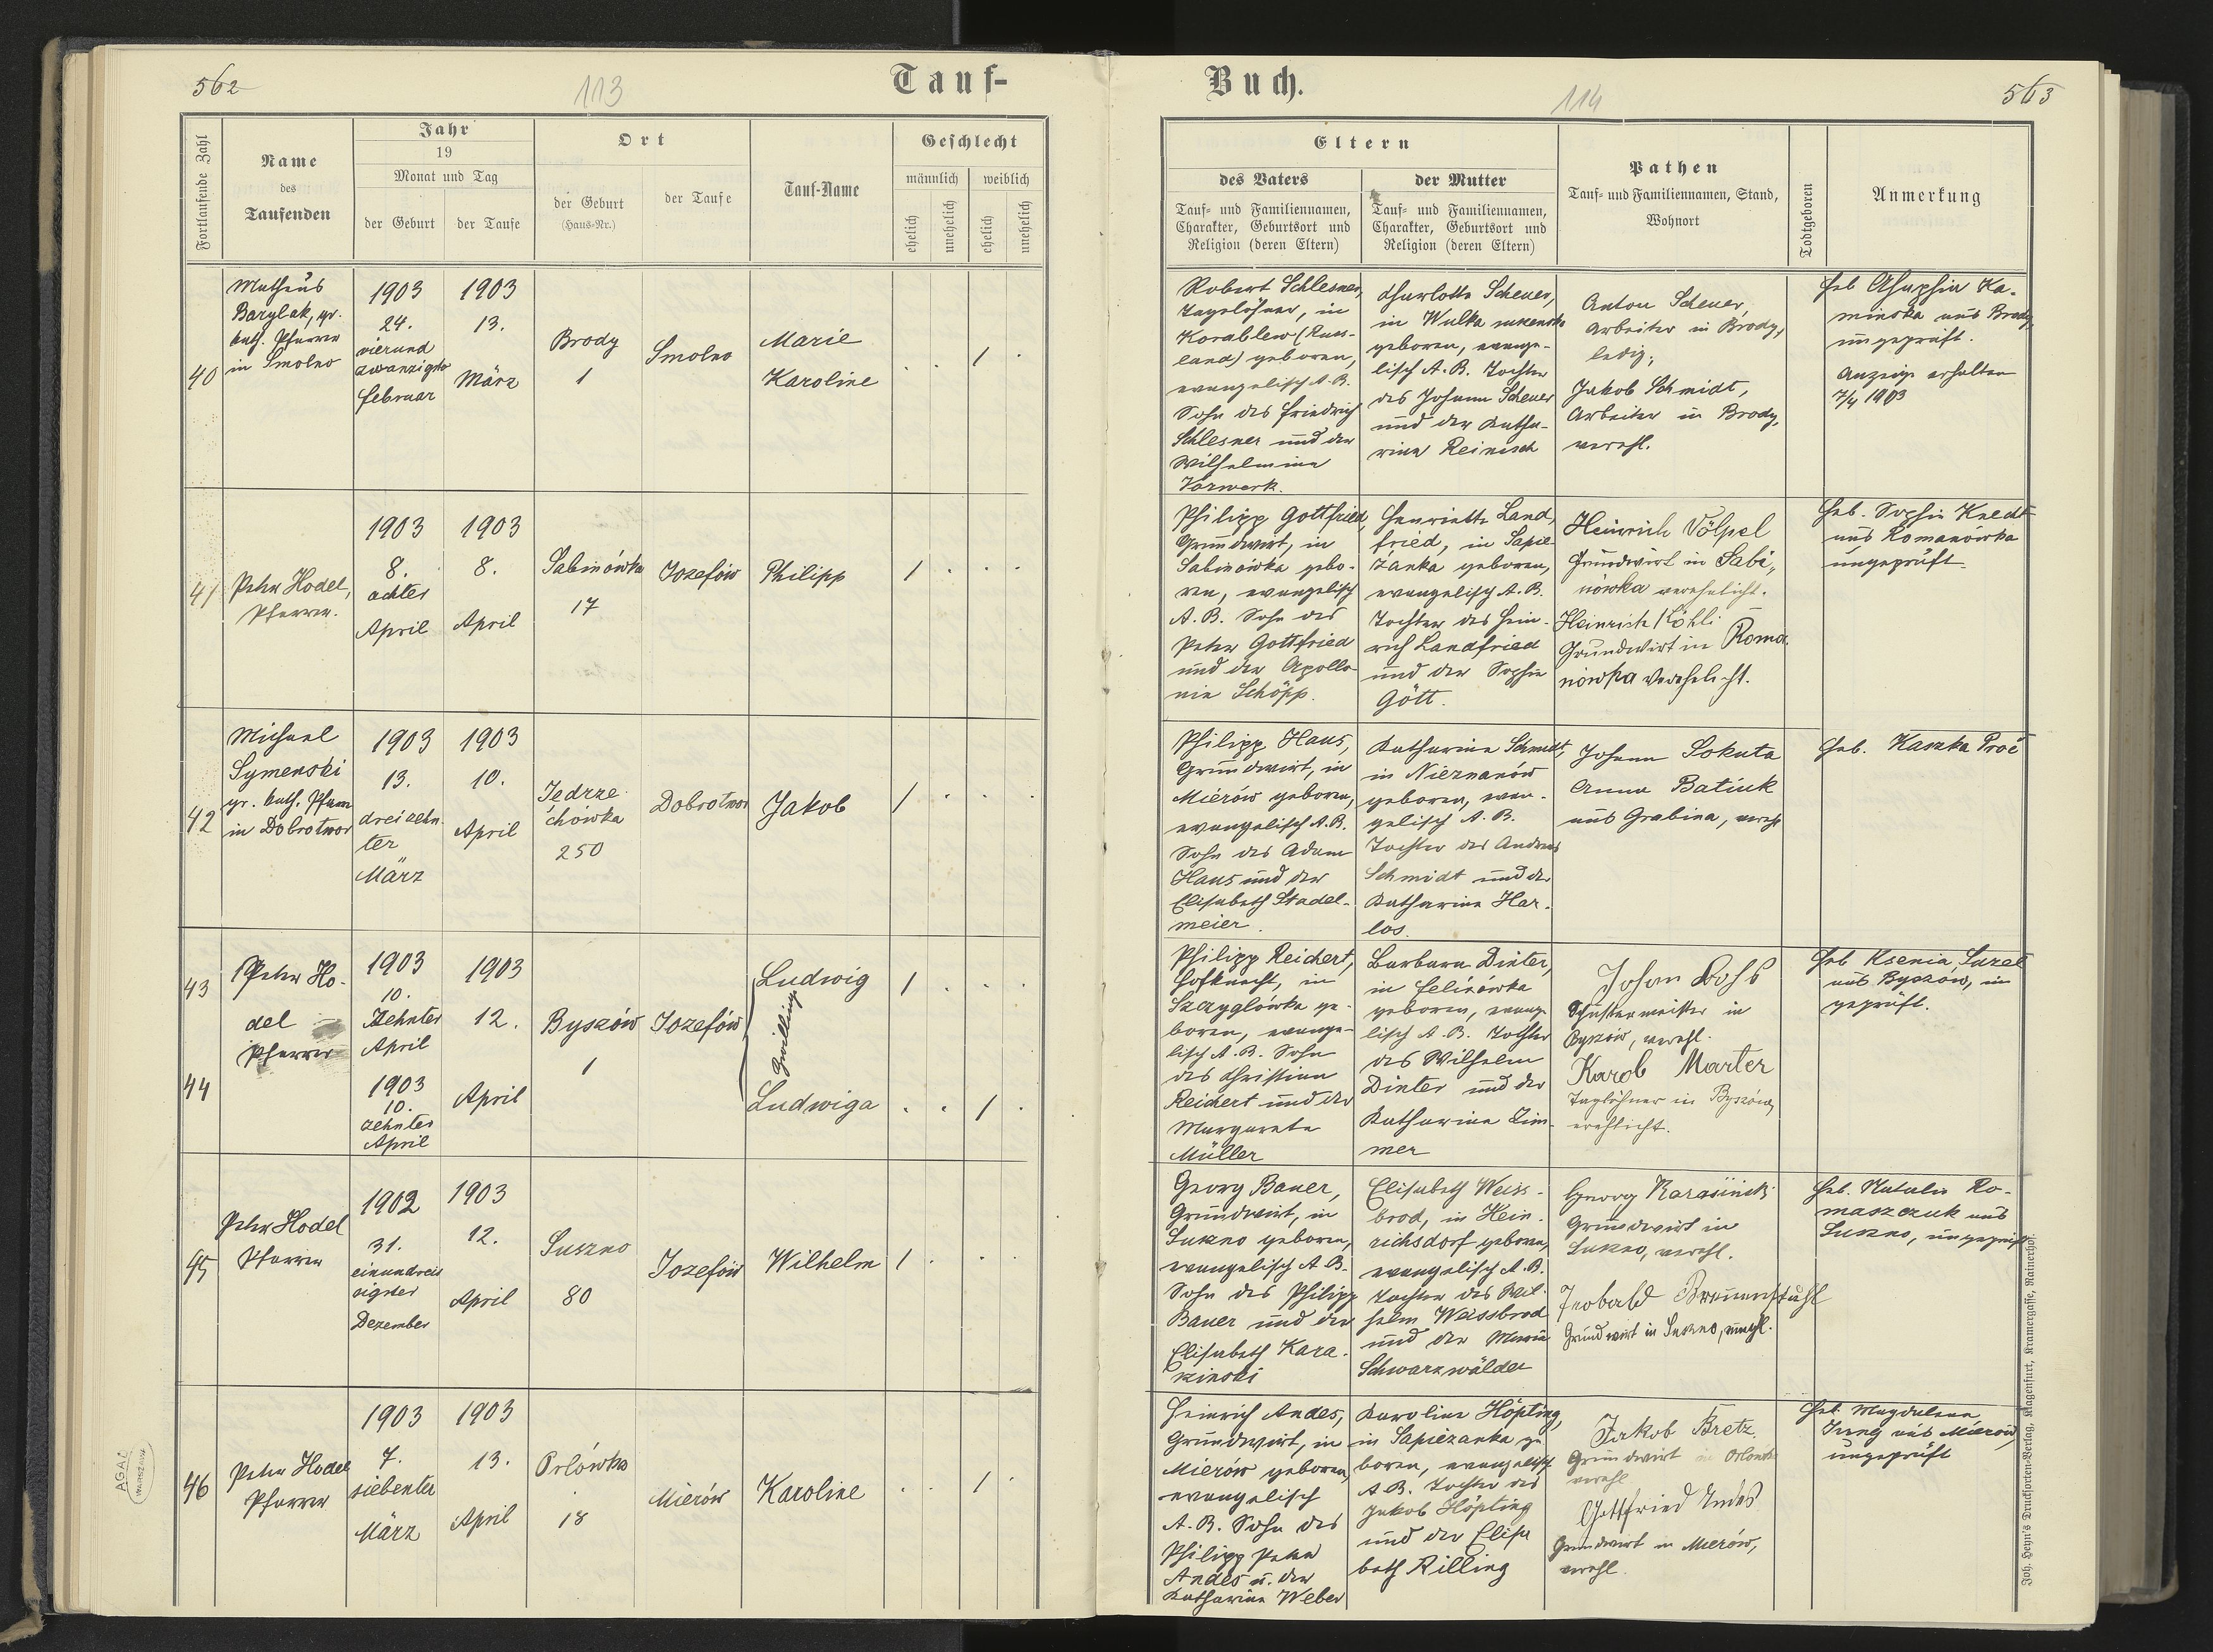 562
113
Tauf-
Fortlaufende Zahl
Name
des
Taufenden
Jahr
19
Monat und Tag
der Geburt
der Taufe
Ort
der Geburt
(Haus-Nr.)
der Taufe
Tauf-Name
Geschlecht
männlich
weiblich
ehelich
unehelich
ehelich
unehelich
40
Matheus
Barylak, gr.
kath. Pfarrer
in Smolno
1903
24.
vierund
zwanzigster
Februar
1903
13.
März
Brody
1
Smolno
Marie
Karoline
. . 1 .
41
Peter Hodel,
Pfarrer.
1903
8.
achter
April
1903
8.
April
Sabinówka
17
Jozefów
Philipp
1 . . .
42
Michael
Symenski
gr. kath. Pfarrer
in Dobrotwor
1903
13.
dreizehn-
ter
März
1903
10.
April
Jędrze-
chówka
250
Dobrotwor
Jakob
1 . . .
43
Peter Ho-
del
Pfarrer
1903
10.
Zehnter
April
1903
12.
April
Byszów
1
Jozefów
Ludwig
1 . . .
Zwillinge
44
1903
10.
zehnter
April
Ludwiga
. . 1 .
45
Peter Hodel
Pfarrer
1902
31.
einunddreis
sigster
Dezember
1903
12.
April
Suszno
80
Jozefów
Wilhelm
1 . . .
46
Peter Hodel
Pfarrer
1903
7.
siebenter
März
1903
13.
April
Orlówka
18
Mierów
Karoline
. . 1 .
AGAD
WARSZAWA
Buch.
114
563
Eltern
des Vaters
Tauf- und Familiennamen,
Charakter, Geburtsort und
Religion (deren Eltern)
der Mutter
Tauf- und Familiennamen,
Charakter, Geburtsort und
Religion (deren Eltern)
Pathen
Tauf- und Familiennamen, Stand,
Wohnort
Todtgeboren
Anmerkung
Robert Schlesner,
Tagelöhner, in
Korablew (Russ-
land) geboren,
evangelisch A. B.
Sohn des Friedrich
Schlesner und der
Wilhelmine
Vorwerk.
Charlotte Scheuer,
in Wulka
geboren, evange-
lisch A. B. Tochter
des Johann Scheuer
und der Katha-
rina Reinisch
Anton Scheuer,
Arbeiter in Brody,
ledig;
Jakob Schmidt,
Arbeiter in Brody,
verehl.
Heb Ahaphia Ka-
minska aus Brody,
ungeprüft.
Anzeige erhalten
7/4 1903
Philipp Gottfried
Grundwirt, in
Sabinówka gebo-
ren, evangelisch
A. B. Sohn des
Peter Gottfried
und der Apollo-
nia Schöpp.
Henriette Land-
fried, in Sapie-
żanka geboren,
evangelisch A. B.
Tochter des Hein-
rich Landfried
und der Sophie
Gött.
Heinrich Völpel
Grundwirt in Sabi-
nówka verehelicht.
Heinrich Köhli
Grundwirt in Roma-
nówka verehelicht.
Heb. Sophie Knecht
aus Romanówka
ungeprüft
Philipp Haus,
Grundwirt, in
Mierów geboren,
evangelisch A. B.
Sohn des Adam
Haus und der
Elisabeth Stadel-
meier.
Katharina Schmidt,
in Nieznanów
geboren, evan-
gelisch A. B.
Tochter des Andreas
Schmidt und der
Katharina Har-
los.
Johann Sokuta
Anna Batiuk
aus Grabina, verehl
Heb. Kaszka Proć
Philipp Reichert,
Hofknecht, in
Szczyglówka ge-
boren, evange-
lisch A. B. Sohn
des Christian
Reichert und der
Margareta
Müller
Barbara Dinter,
in Felizówka
geboren, evange
lisch A. B. Tochter
des Wilhelm
Dinter und der
Katharina Zim-
mer
Johan
Schustermeister in
Byszów, verehl.
Karol Marter
Taglöhner in Byszów,
Heb Ksenia
aus Byszów, un
geprüft.
Georg Bauer,
Grundwirt, in
Suszno geboren,
evangelisch A. B.
Sohn des Philipp
Bauer und der
Elisabeth Kara-
szinski
Elisabeth Weiss-
brod, in Hein-
richsdorf geboren,
evangelisch A. B.
Tochter des Wil-
helm Weissbrod
und der Maria
Schwarzwälder
Georg
Grundwirt in
Suszno, verehl.
Brennenstuhl
Grundwirt in Suszno, verehl.
Heb. Natalie Ro-
maszczuk aus
Suszno, ungeprüft
Heinrich Andes,
Grundwirt, in
Mierów geboren,
evangelisch
A. B. Sohn des
Philipp Peter
Andes u. der
Katharina Weber
Karoline Höpting,
in Sapieżanka ge
boren, evangelisch
A. B. Tochter des
Jakob Höpting
und der Elisa
beth Rilling
Jakob Bretz
Grundwirt in Orlówka
verehl
Gottfried Andes
Grundwirt in Mierów,
verehl.
Heb. Magdalena
Jung aus Mierów,
ungeprüft
Joh. Heyn's Drucksorten-Verlag, Klagenfurt, Kramergasse, Rainerhof.